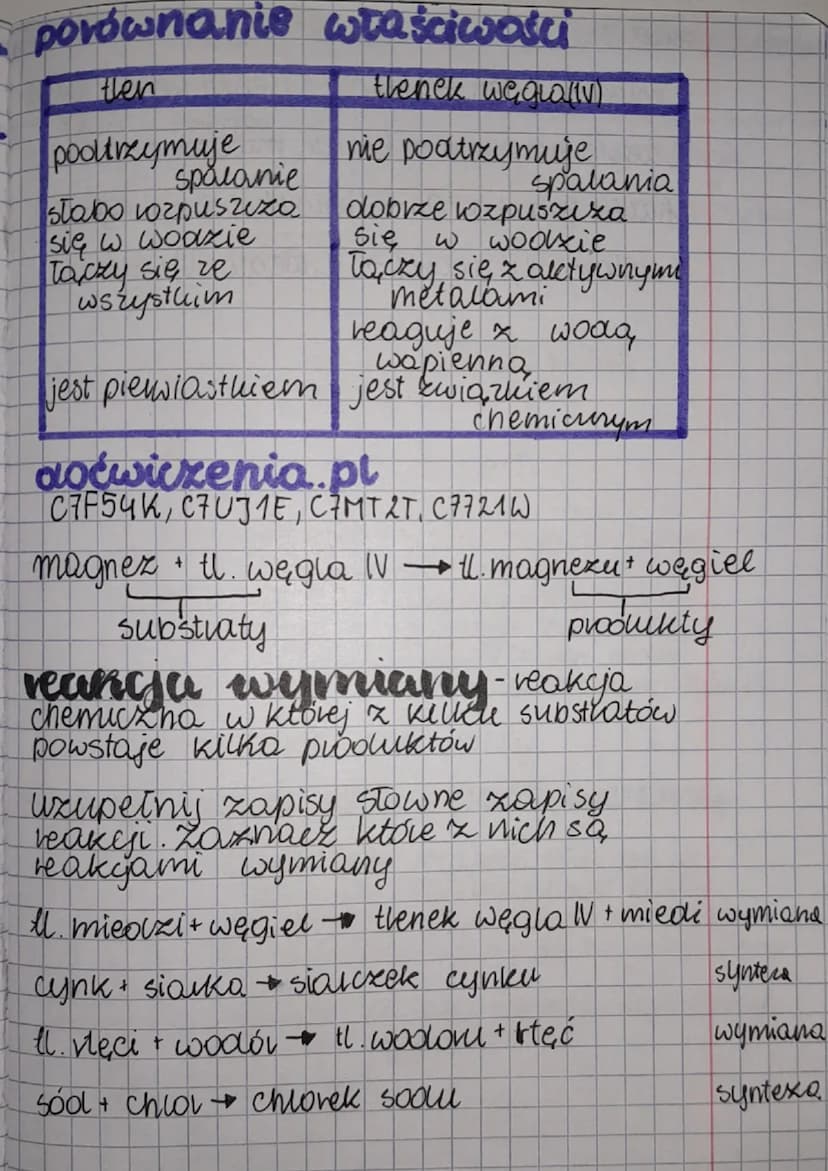 porównanie właściwości
tlen
tlenek węgla(IV)
podtrzymuje
spalanie
słabo rozpuszcza
się w wodzie
łączy się ze
wszystkim
jest pierwiastkiem
nie podtrzymuje
spalania
dobrze rozpuszcza
się w wodzie
łączy się z aktywnymi
metalami
reaguje z wodą
wapienną
jest związkiem
chemicznym
doćwiczenia.pl
C7F54K, C7UJ1E, C7MT2T, C7721W
magnez + tl. węgla IV → tl. magnezu + węgiel
substraty
produkty
reakcja wymiany - reakcja
chemiczna w której z kilku substratów
powstaje kilka produktów
uzupełnij zapisy słowne zapisy
reakcji. Zaznacz które z nich są
reakcjami wymiany
tl. miedzi + węgiel → tlenek węgla IV + miedź wymiana
cynk + siarka → siarczek cynku synteza
tl. rtęci + wodór → tl. wodoru + rtęć wymiana
sód + chlor → chlorek sodu synteza